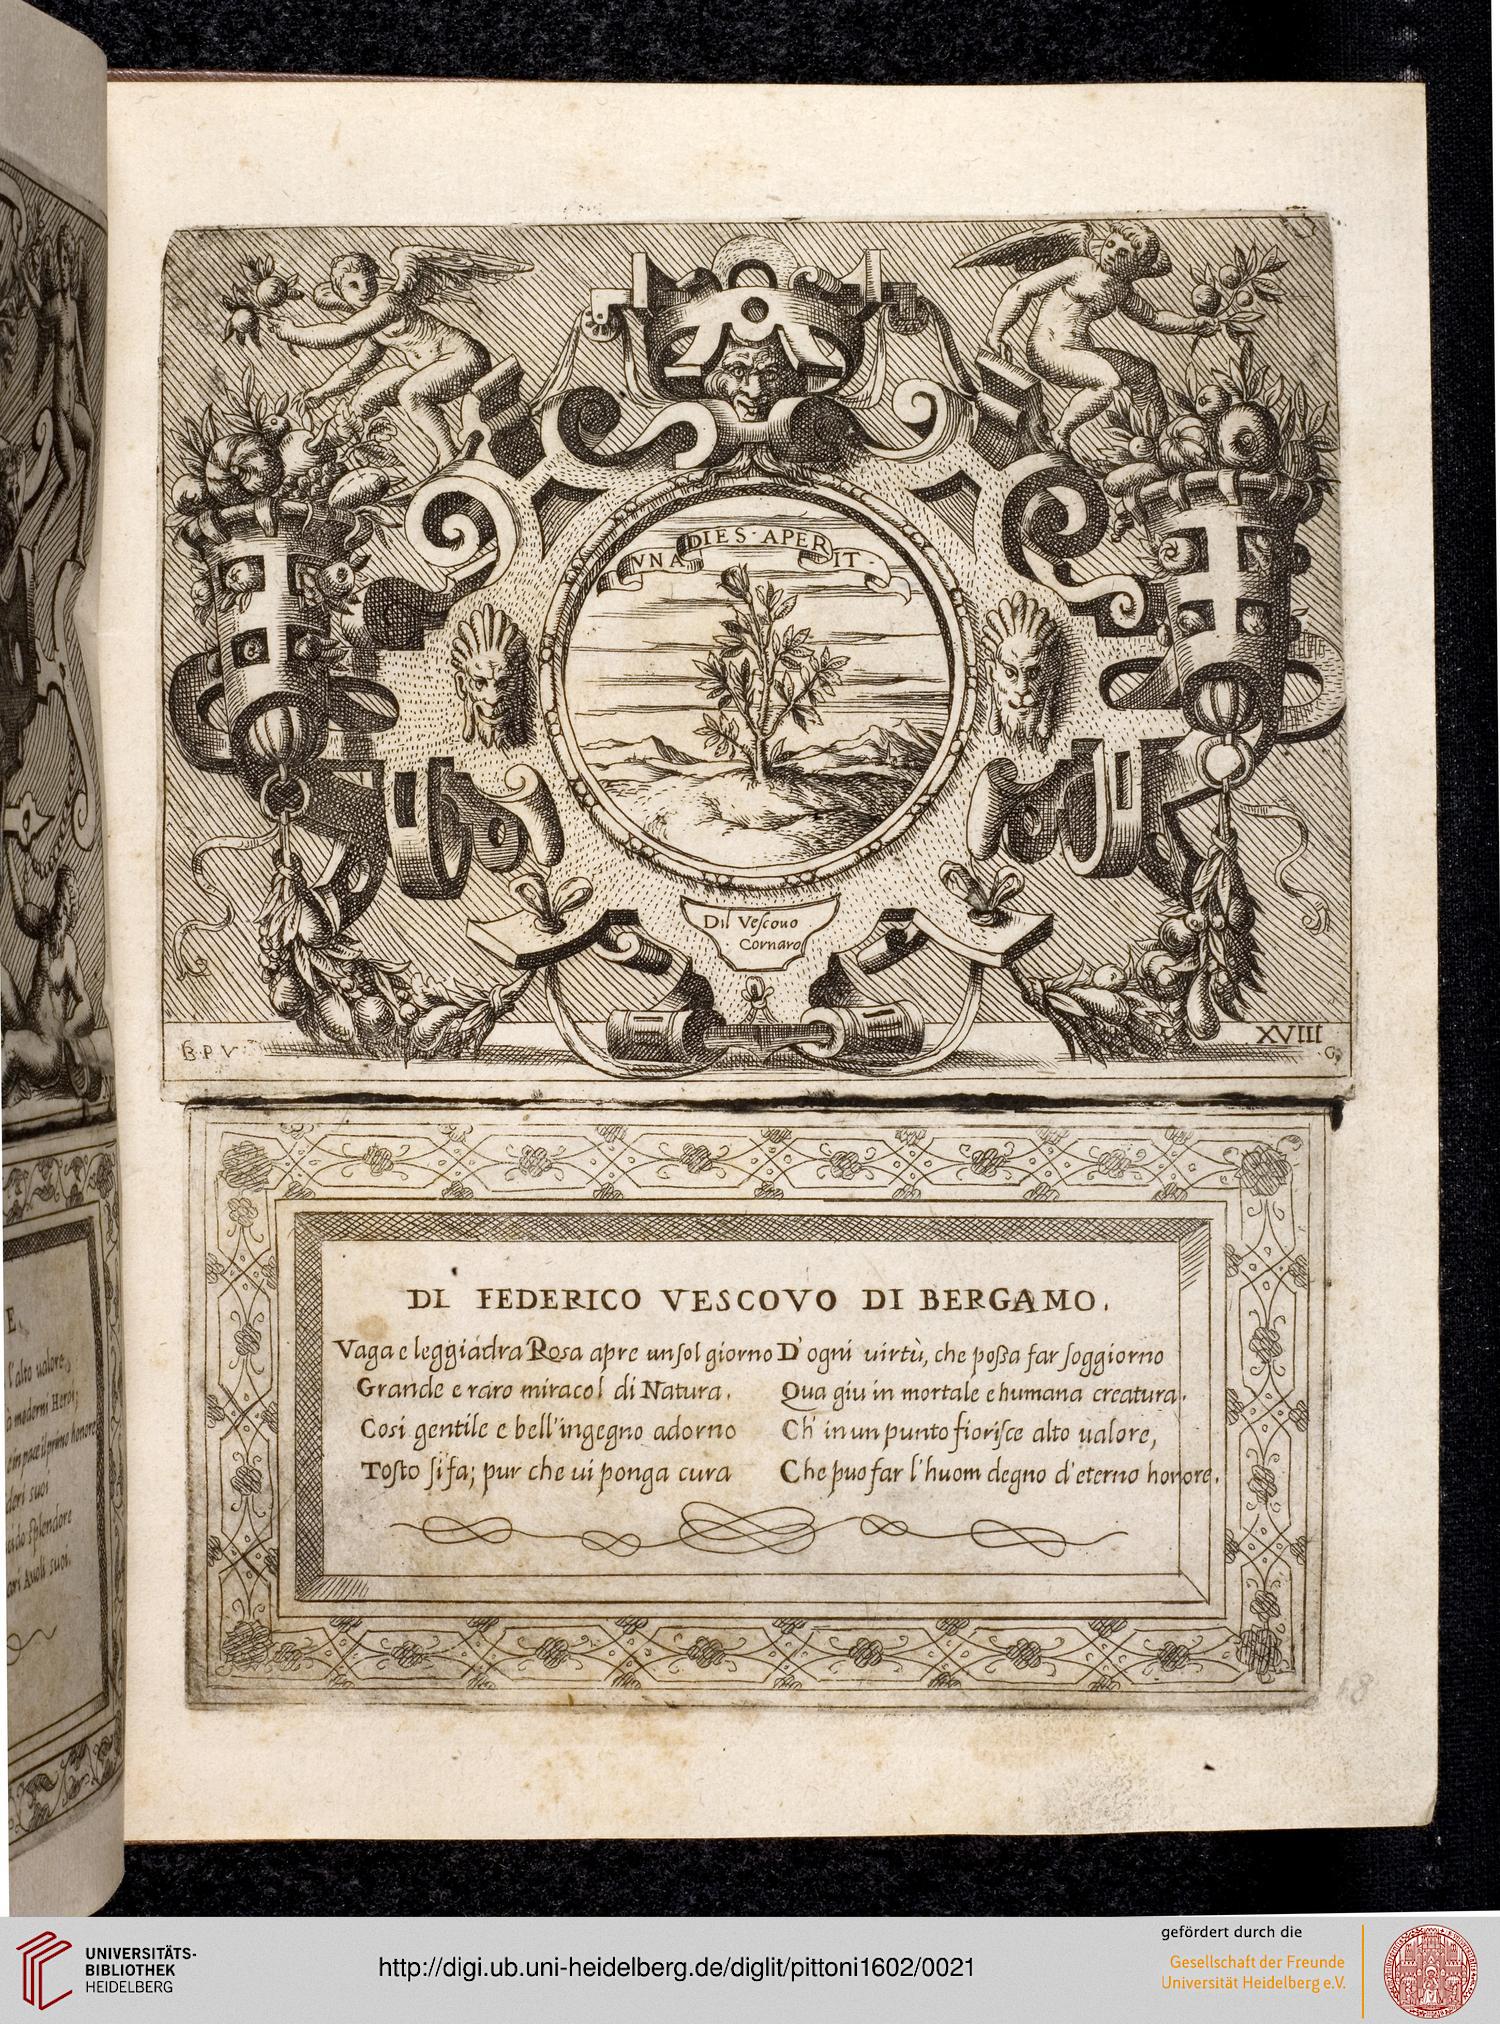 VNA DIES · APERIT ·
Dil Veſcouo
Cornaro
B · P · V ·
XVIII
· G ·
DI FEDERICO VESCOVO DI BERGAMO.
Vaga e leggiadra Rosa apre un ſol giorno
Grande e raro miracol di Natura.
Cosi gentile e bell'ingegno adorno
Toſto ſi fa; pur che ui ponga cura
D'ogni uirtù, che poßa far ſoggiorno
Qua giu in mortale e humana creatura.
Ch' in un punto fioriſce alto ualore,
Che puo far l'huom degno d'eterno honore.
18
E.
l'alto ualore,
moderni Heroi;
e in pace il primo honore
suoi
ſplendore
Auoli suoi.
UNIVERSITÄTS-
BIBLIOTHEK
HEIDELBERG
http://digi.ub.uni-heidelberg.de/diglit/pittoni1602/0021
gefördert durch die
Gesellschaft der Freunde
Universität Heidelberg e.V.